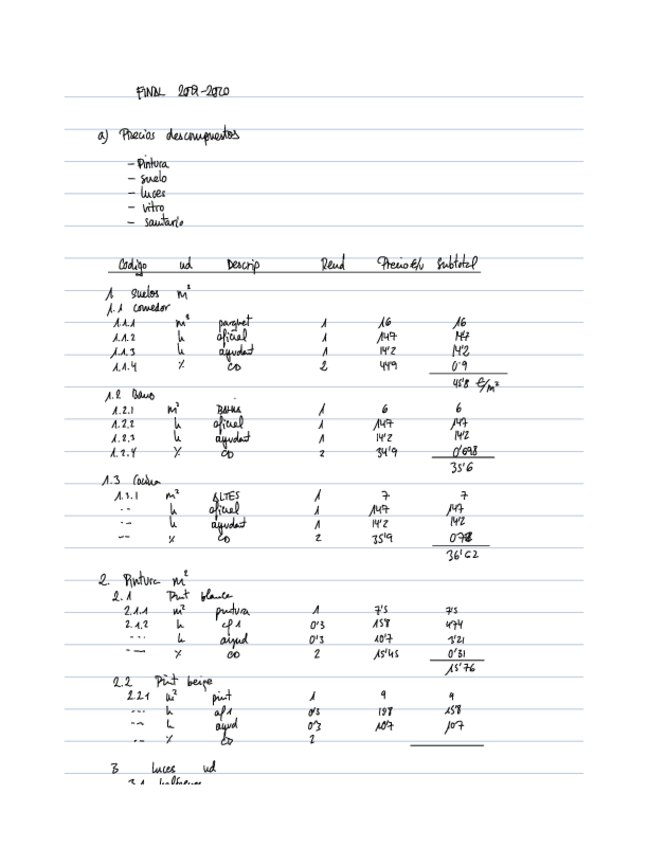 FINAL 2019-2020
a) Precios descompuestos
- Pintura
- suelo
- luces
- vitro
- sanitario
Codigo ud Descrip Rend Precio €/u Subtotal
1 suelos m²
1.1 comedor
1.1.1 m² parquet 1 16 16
1.1.2 h oficial 1 14'7 14'7
1.1.3 h ayudant 1 14'2 14'2
1.1.4 % CD 2 44'9 0'9
45'8 €/m²
1.2 Baño
1.2.1 m² 1 6 6
1.2.2 h oficial 1 14'7 14'7
1.2.3 h ayudant 1 14'2 14'2
1.2.4 % CD 2 34'9 0'698
35'6
1.3 Cocina
1.3.1 m² ALTES 1 7 7
-- h oficial 1 14'7 14'7
-- h ayudant 1 14'2 14'2
-- % CD 2 35'9 0'72
36'62
2. Pintura m²
2.1 Pint blanca
2.1.1 m² pintura 1 7'5 7'5
2.1.2 h of 1 0'3 15'8 4'74
--- h ayud 0'3 10'7 3'21
--- % CD 2 15'45 0'31
15'76
2.2 Pint beige
2.2.1 m² pint 1 9 9
--- h of 1 0'3 15'8 15'8
-- h ayud 0'3 10'7 10'7
-- % CD 2
3 luces ud
3.1